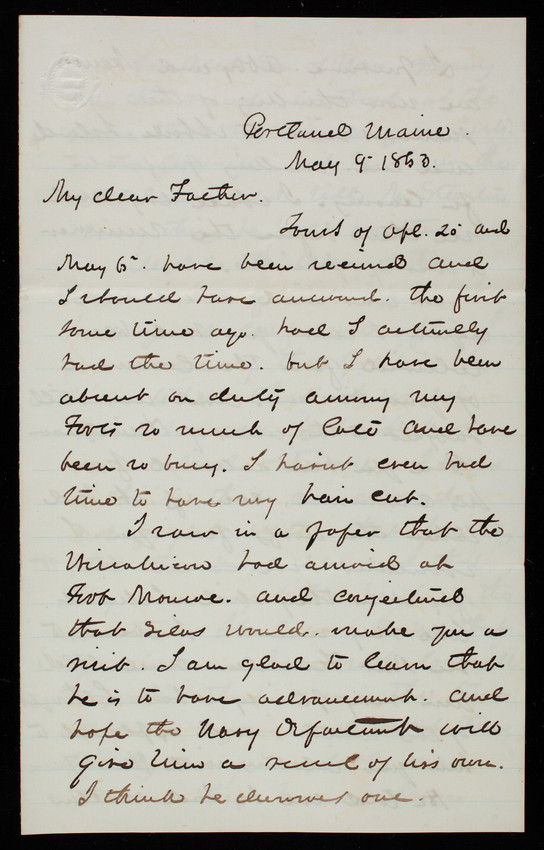 Portland Maine.
May 9 1863.
My dear Father.
Yours of Apl. 25 and
May 6. have been received and
I should have answered. the first
some time ago. had I actually
had the time. but I have been
absent on duty among my
Forts so much of late and have
been so busy. I havnt even had
time to have my hair cut.
I saw in a paper that the
had arrived at
Fort Monroe. and conjectured
that Silas would. make you a
visit. I am glad to learn that
he is to have advancement. and
hope the Navy Department will
give him a vessel of his own.
I think he deserves one.